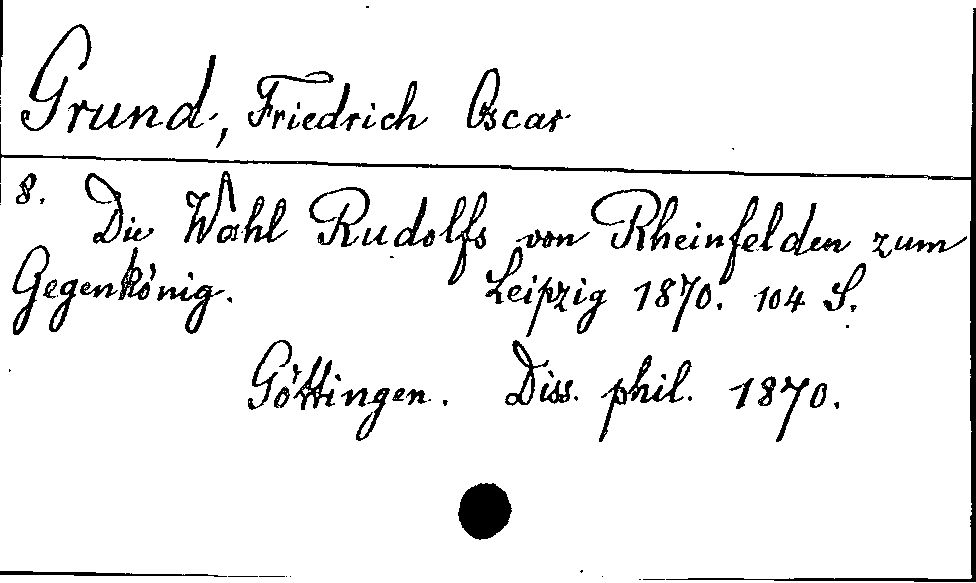 Grund, Friedrich Oscar
8. Die Wahl Rudolfs von Rheinfelden zum
Gegenkönig. Leipzig 1870. 104 S.
Göttingen. Diss. phil. 1870.